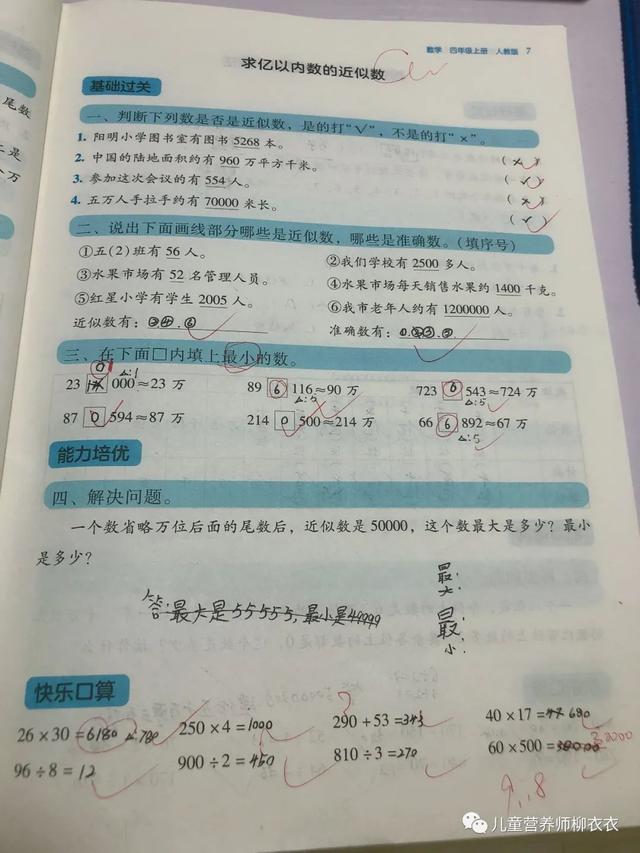 数学 四年级上册 人教版 7
求亿以内数的近似数
基础过关
一、判断下列数是否是近似数，是的打“√”，不是的打“×”。
1. 阳明小学图书室有图书 5268 本。 (×)
2. 中国的陆地面积约有 960 万平方千米。 (√)
3. 参加这次会议的有 554 人。 (×)
4. 五万人手拉手约有 70000 米长。 (√)
二、说出下面画线部分哪些是近似数，哪些是准确数。(填序号)
①五(2)班有 56 人。 ②我们学校有 2500 多人。
③水果市场有 52 名管理人员。 ④水果市场每天销售水果约 1400 千克。
⑤红星小学有学生 2005 人。 ⑥我市老年人约有 1200000 人。
近似数有： 准确数有：
三、在下面□内填上最小的数。
23 000≈23 万 89 6 116≈90 万 723 6 543≈724 万
△:1 △:5 △:5
87 0 594≈87 万 214 0 500≈214 万 66 6 892≈67 万
△:5
能力培优
四、解决问题。
一个数省略万位后面的尾数后，近似数是 50000，这个数最大是多少？最小
是多少？
最大:
答:最大是55555,最小是49999
最小:
快乐口算
26 × 30 = 6180 △780 250 × 4 = 1000 290 + 53 = 343 40 × 17 = 680
96 ÷ 8 = 12 900 ÷ 2 = 450 810 ÷ 3 = 270 60 × 500 = 30000
9..8
儿童营养师柳衣衣